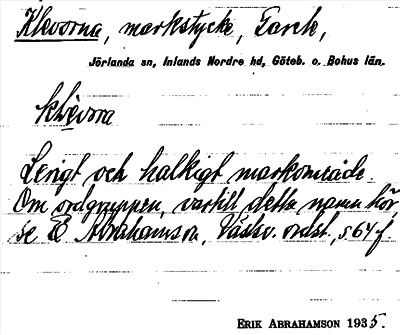 Klevorna, markstycke, Tarek,
Jörlanda sn, Inlands Nordre hd, Göteb. o. Bohus län.
klèvora
Lerigt och halkigt markområde.
Om ordgruppen, vartill detta namn hör,
se E Abrahamson, Västsv. ordst., s. 64 f.
ERIK ABRAHAMSON 1935.